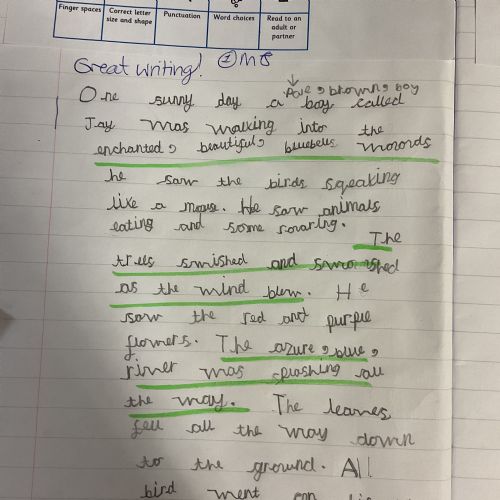 Finger spaces Correct letter size and shape Punctuation Word choices Read to an adult or partner
Great writing!
brown, boy
One sunny day a boy called
Jay was walking into the
enchanted, beautiful, bluebells woods
he saw the birds sqeaking
like a mouse. He saw animals
eating and some roraring.
The
trees swished and swooshed
as the wind blew. He
saw the red and purple
flowers. The azure, blue,
river was splashing all
the way. The leaves
fell all the way down
to the ground. All
bird went